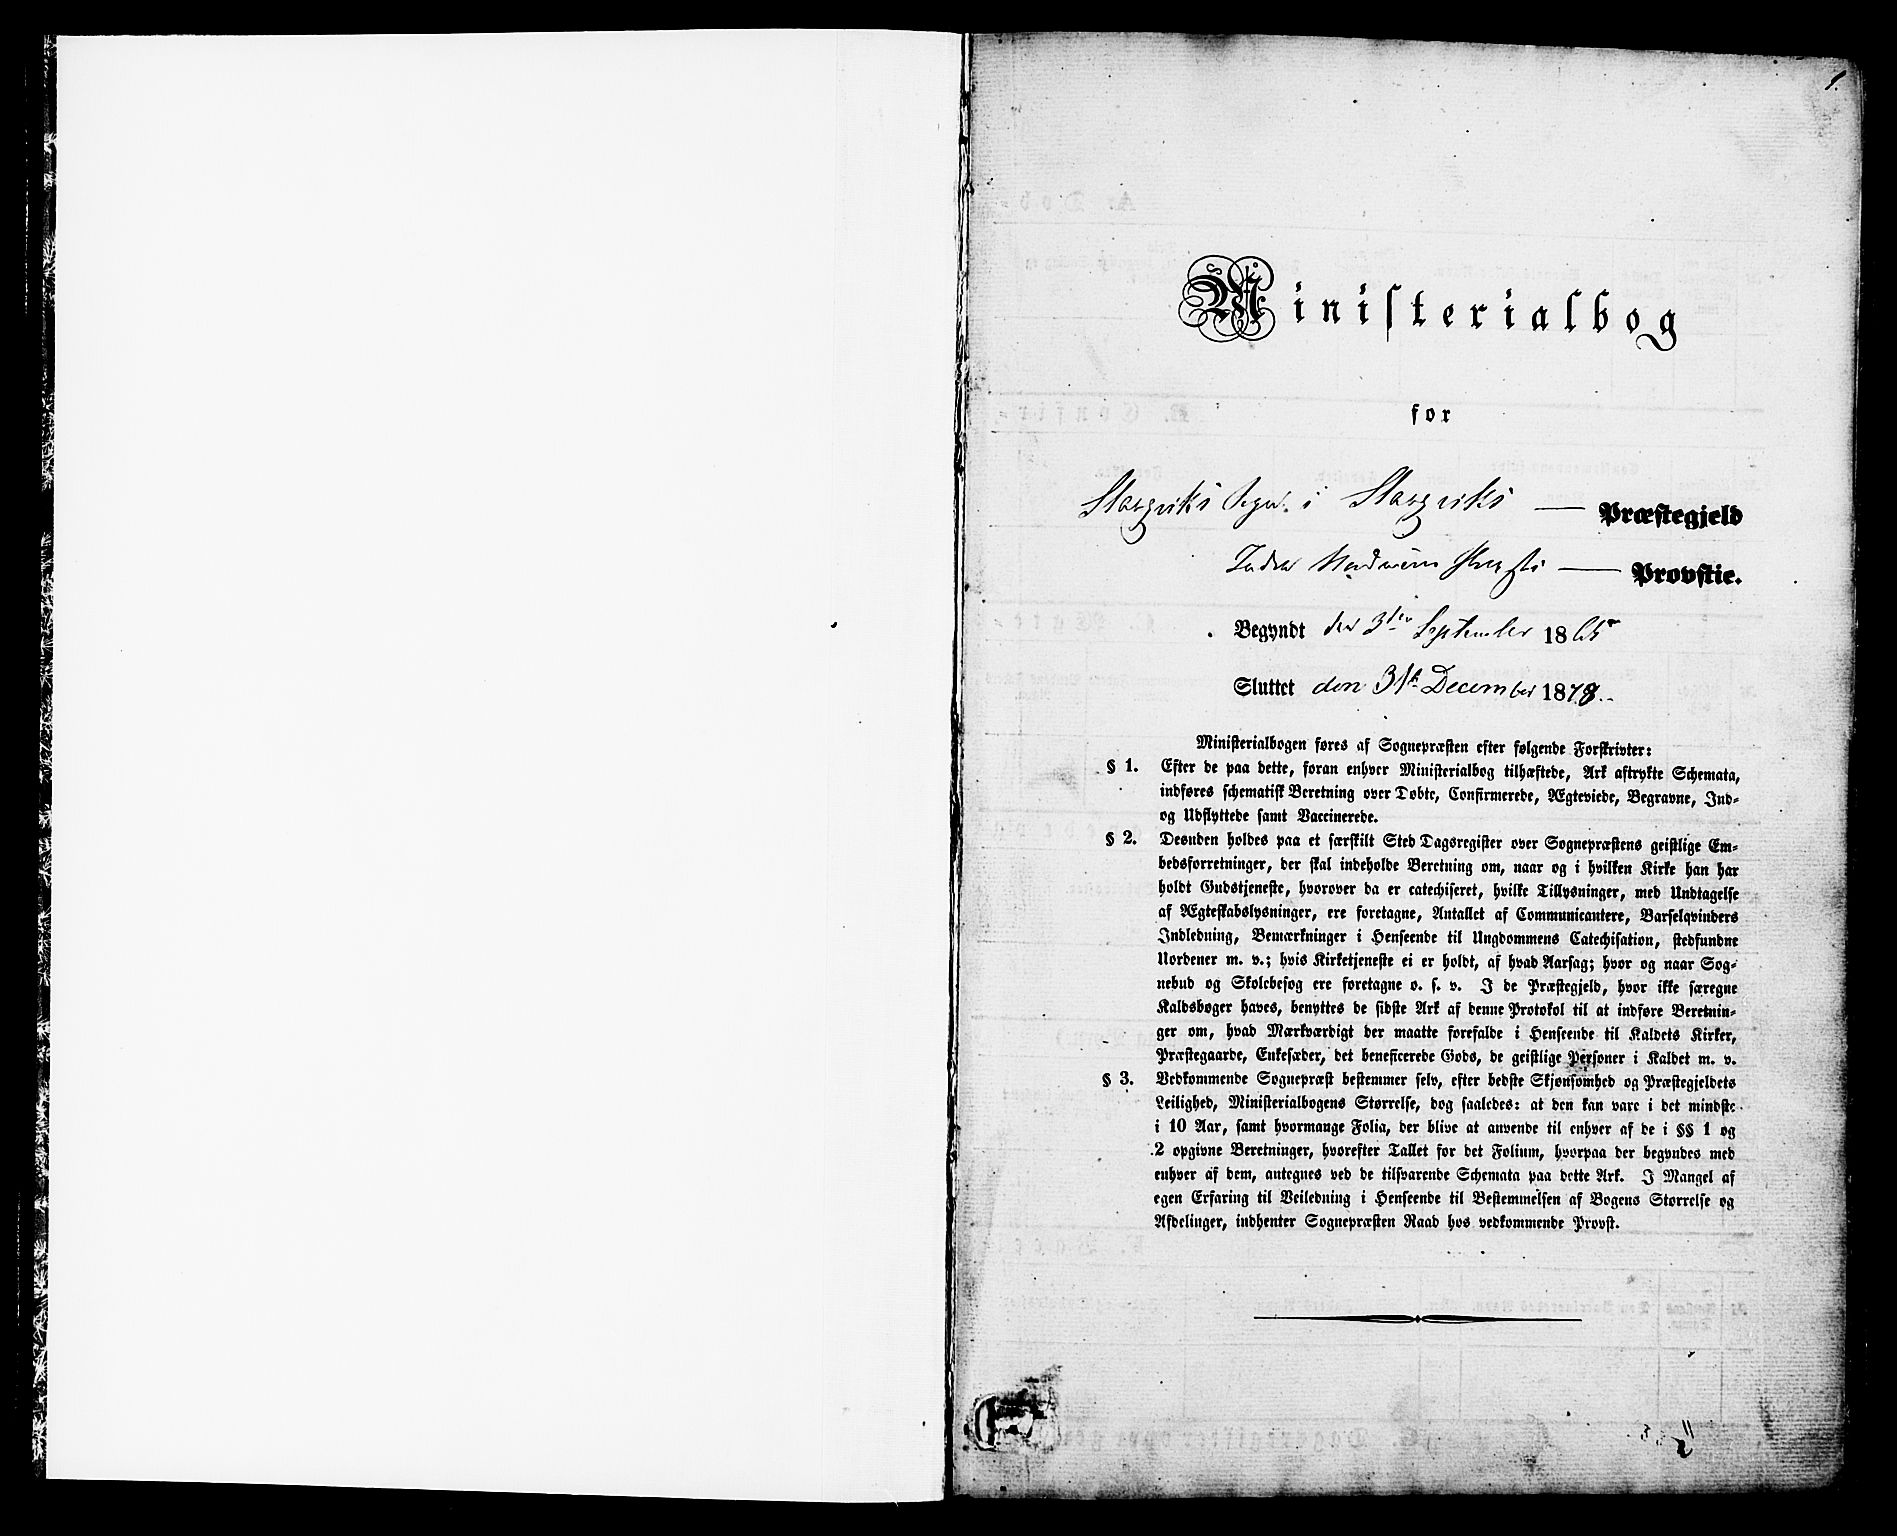 1.
Ministerialbog
for
Stangviks Sogn i Stangviks — Præstegjeld
Indre Nordmøre — Provstie.
Begyndt den 3die September 1865
Sluttet den 31te December 1878.
Ministerialbogen føres af Sognepræsten efter følgende Forskrivter:
§ 1. Efter de paa dette, foran enhver Ministerialbog tilhæftede, Ark aftrykte Schemata,
indføres schematisk Beretning over Døbte, Confirmerede, Ægteviede, Begravne, Ind-
og Udflyttede samt Vaccinerede.
§ 2. Desuden holdes paa et særskilt Sted Dagsregister over Sognepræstens geistlige Em-
bedsforretninger, der skal indeholde Beretning om, naar og i hvilken Kirke han har
holdt Gudstjeneste, hvorover da er catechiseret, hvilke Tillysninger, med Undtagelse
af Ægteskabslysninger, ere foretagne, Antallet af Communicantere, Barselqvinders
Indledning, Bemærkninger i Henseende til Ungdommens Catechisation, stedfundne
Uordener m. v.; hvis Kirketjeneste ei er holdt, af hvad Aarsag; hvor og naar Sog-
nebud og Skolebesøg ere foretagne o. s. v. I de Præstegjeld, hvor ikke særegne
Kaldsbøger haves, benyttes de sidste Ark af denne Protokol til at indføre Beretnin-
ger om, hvad Mærkværdigt der maatte forefalde i Henseende til Kaldets Kirker,
Præstegaarde, Enkesæder, det beneficerede Gods, de geistlige Personer i Kaldet m. v.
§ 3. Vedkommende Sognepræst bestemmer selv, efter bedste Skjønsomhed og Præstegjeldets
Leilighed, Ministerialbogens Størrelse, dog saaledes: at den kan vare i det mindste
i 10 Aar, samt hvormange Folia, der blive at anvende til enhver af de i §§ 1 og
2 opgivne Beretninger, hvorefter Tallet for det Folium, hvorpaa der begyndes med
enhver af dem, antegnes ved de tilsvarende Schemata paa dette Ark. I Mangel af
egen Erfaring til Veiledning i Henseende til Bestemmelsen af Bogens Størrelse og
Afdelinger, indhenter Sognepræsten Raad hos vedkommende Provst.